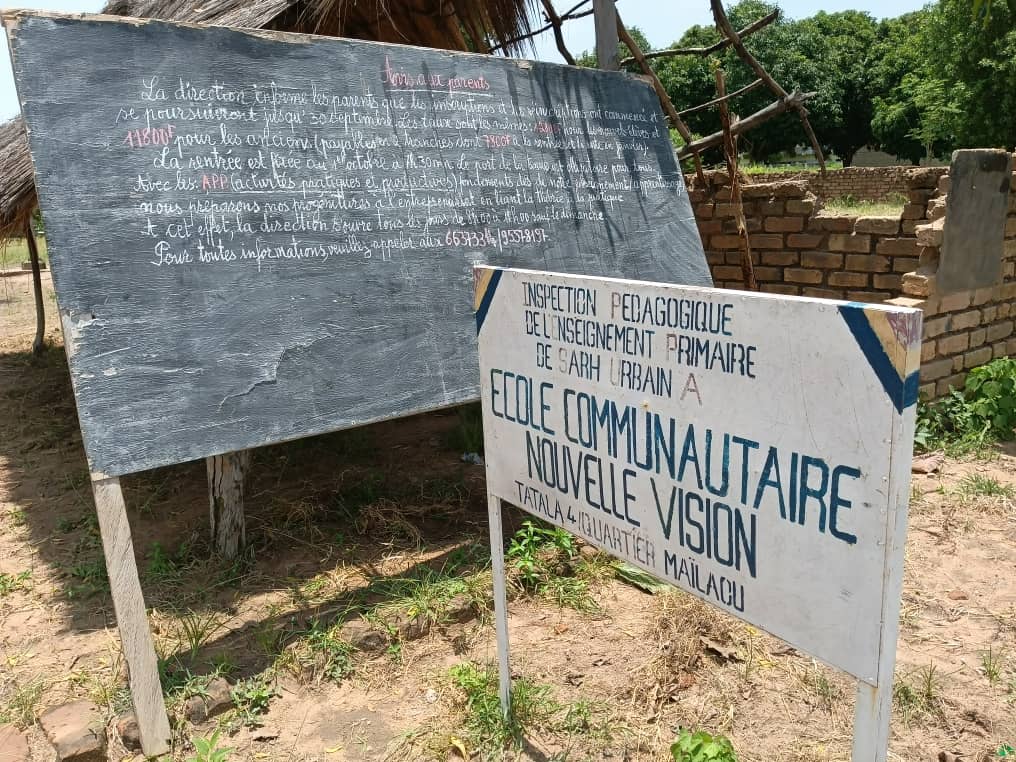 Avis aux parents
La direction informe les parents que les inscriptions et les réinscriptions ont commencé et
se poursuivront jusqu' 30 septembre. Les taux sont les mêmes: pour les élèves et
11800F pour les anciens (payables en tranches dont à la rentrée et le reste en janvier).
La rentrée est fixée au 1er octobre à 7H30mn le port de la tenue est obligatoire pour tous.
Avec les APP (activités pratiques et productives) fondements de notre enseignement/apprentissage
nous préparons nos progénitures à l'entreprenariat en liant la théorie à la pratique
A cet effet, la direction s'ouvre tous les jours de à sauf le dimanche
Pour toutes informations, veuillez appeler aux
INSPECTION PEDAGOGIQUE
DE L'ENSEIGNEMENT PRIMAIRE
DE SARH URBAIN A
ECOLE COMMUNAUTAIRE
NOUVELLE VISION
TATALA 4/QUARTIER MAÏLAOU